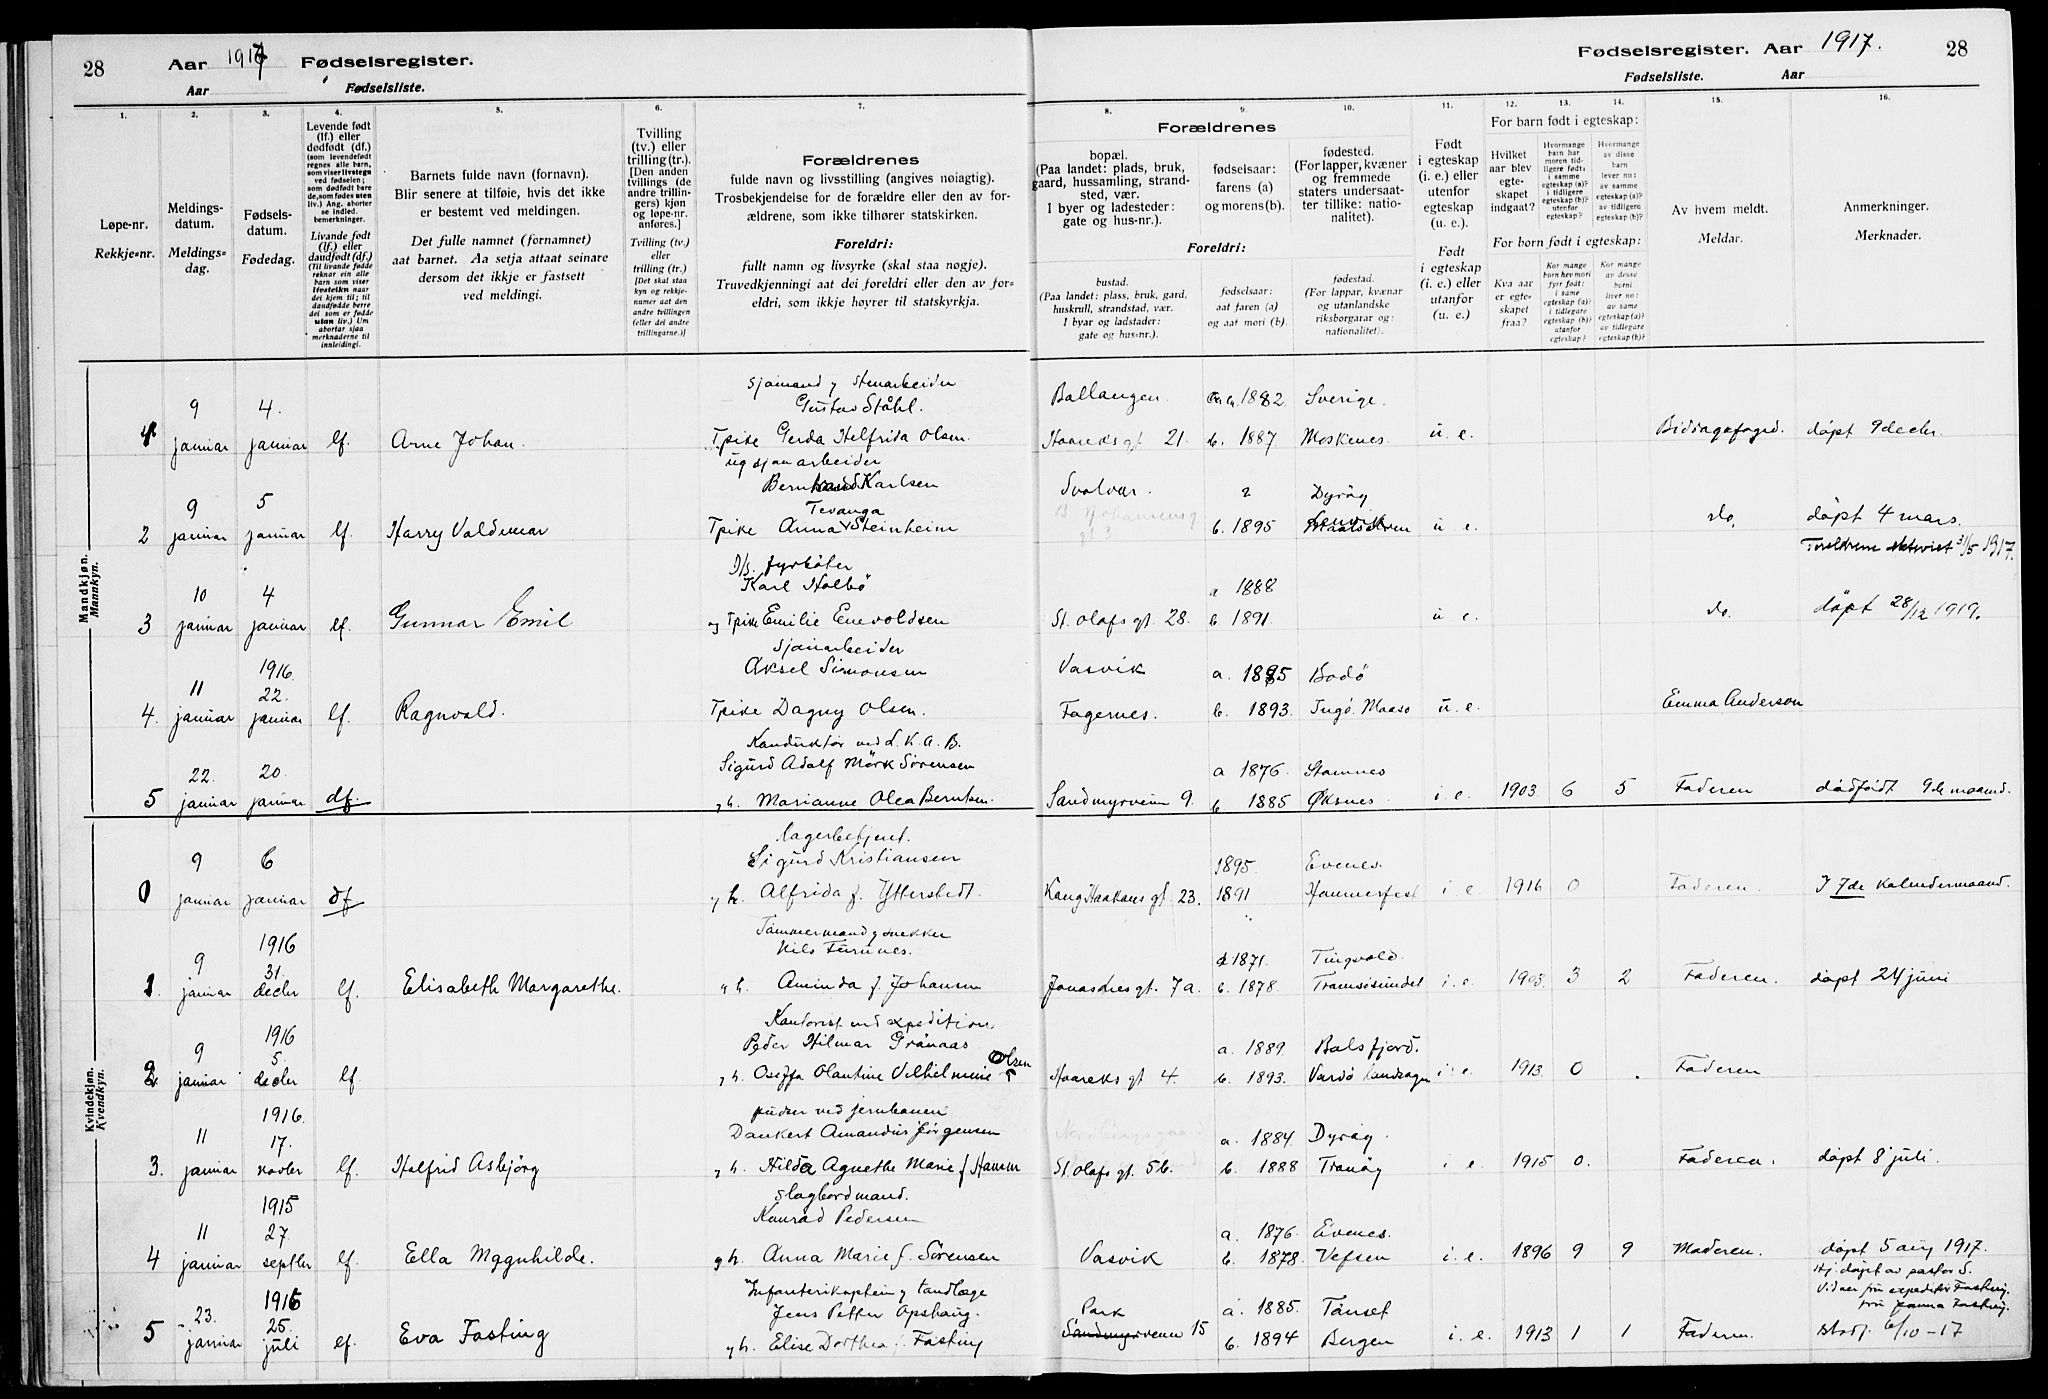 28 Aar 1917 Fødselsregister.
Aar Fødselsliste.
Fødselsregister. Aar 1917. 28
Fødselsliste. Aar
1. 2. 3. 4. 5. 6. 7. 8. 9. 10. 11. 12. 13. 14. 15. 16.
Løpe-nr.
Rekkje-nr.
Meldings-
datum.
Meldings-
dag.
Fødsels-
datum.
Fødedag.
Levende født
(lf.) eller
dødfødt (df.)
(som levendefødt
regnes alle barn,
som viser livstegn
ved fødselen;
som dødfødt bare
de, som fødes uten
liv.) Ang. aborter
se indled.
bemerkninger.
Livande født
(lf.) eller
daudfødt (df.)
(Til livande fødde
reknar ein alle
barn som viser
livsteikn naar
dei kjem til; til
daudfødde berre
dei som er fødde
utan liv.) Um
abortar sjaa
merknaderne til
innleidingi.
Barnets fulde navn (fornavn).
Blir senere at tilføie, hvis det ikke
er bestemt ved meldingen.
Det fulle namnet (fornamnet)
aat barnet. Aa setja attaat seinare
dersom det ikkje er fastsett
ved meldingi.
Tvilling
(tv.) eller
trilling (tr.).
[Den anden
tvillings (de
andre trillin-
gers) kjøn
og løpe-nr.
anføres.]
Tvilling (tv.)
eller
trilling (tr.)
[Det skal staa
kyn og rekkje-
numer aat den
andre tvillingen
(eller dei andre
trillingarne.)]
Forældrenes
fulde navn og livsstilling (angives nøiagtig).
Trosbekjendelse for de forældre eller den av for-
ældrene, som ikke tilhører statskirken.
Foreldri:
fullt namn og livsyrke (skal staa nøgje).
Truvedkjenningi aat dei foreldri eller den av for-
eldri, som ikkje høyrer til statskyrkja.
Forældrenes
bopæl.
(Paa landet: plads, bruk,
gaard, hussamling, strand-
sted, vær.
I byer og ladesteder:
gate og hus-nr.).
fødselsaar:
farens (a)
og morens (b).
fødested.
(For lapper, kvæner
og fremmede
staters undersaat-
ter tillike: natio-
nalitet).
Foreldri:
bustad.
(Paa landet: plass, bruk, gard,
huskrull, strandstad, vær.
I byar og ladstader:
gate og hus-nr.).
fødselsaar:
aat faren (a)
og aat mori (b).
fødestad.
(For lappar, kvænar
og utanlandske
riksborgarar og:
nationalitet).
Født
i egteskap
(i. e.) eller
utenfor
egteskap
(u. e.).
Født
i egteskap
(i. e.) eller
utanfor
(u. e.)
For barn født i egteskap:
Hvilket
aar blev
egte-
skapet
indgaat?
Hvormange
barn har
moren tid-
ligere født:
i samme
egteskap (a)?
i tidligere
egteskap (b)?
utenfor
egteskap?
Hvormange
av disse
barn
lever nu:
av samme
egteskap (a)?
av tidligere
egteskap (b)?
For born født i egteskap:
Kva aar
er egte-
skapet
fraa?
Kor mange
born hev mori
fyrr født:
i same
egteskap (a)?
i tidlegare
egteskap (b)?
utanfor
egteskap?
Kor mange
av desse
borni
liver no:
av same
egteskap (a)?
av tidlegare
egteskap (b)?
Av hvem meldt.
Meldar.
Anmerkninger.
Merknader.
Mandkjøn.
Mannkyn.
sjømand y stenarbeider
9 4. Gustav Ståhl. Ballangen. 1882 Sverige.
1 januar januar lf. Arne Johan. Tpike Gerda Helfrida Olsen. Haareks gt 21. b. 1887 Moskenes. u. e. Bidragsfoged. døpt 9 decbr.
og sjauarbeider
9 5 Karlsen Svolvær. a Dyrøy
Tevanga
2 januar januar lf. Harry Valdemar Tpike Anna Steinheim b. 1895 Lenvik u e. do. døpt 4 mars.
31/5 1917.
D/s. fyrbøter
10 4 Karl Holbø a 1888
3 januar januar lf. Gunnar Emil og Tpike Emilie Enevoldsen St. Olafs gt. 28. b. 1891. u e. do. døpt 28/12 1919.
sjauarbeider
1916
11 22. Aksel Simonsen Vasvik a. 1885 Bodø
4. januar januar lf. Ragnvald. Tpike Dagny Olsen. Fagernes. b. 1893. Ingø. Maasø u. e. Emma Anderson
Konduktør ved L. K. A. B.
22. 20. Sigurd Adolf Mörk Sørensen a 1876. Stamnes
5 januar januar df. y h. Marianne Olea Berntsen. Sandmyrveien 9. b 1885 Øksnes. i. e. 1903 6 5 Faderen dødfødt 9de maaned.
Kvindekjøn.
Kvendkyn.
Lagerbetjent.
9 6 Sigurd Kristiansen 1895. Evenes.
0 januar januar df y h. Alfrida f. Ytterstedt. Kong Haakons gt. 23. 1891 Hammerfest i e. 1916 0 Faderen. I 7de kalendermaaned.
Tømmermand y snekker
1916
9 31. Nils Furunes. a 1871. Tingvold.
1. januar decbr lf. Elisabeth Margarethe. y h. Aminda f. Johansen Jonasdres gt. 7a. b. 1878. Tromsøsundet i. e. 1903. 3 2 Faderen. døpt 24 juni
Kontorist ved expedition
1916
9 5. Peder Hilmar Grönaas a. 1889. Balsfjord.
2 januar decbr lf y h. Oseffa Olantine Vilhelmine Olsen Haareks gt 4. b. 1893. Vardø landsogn i. e. 1913 0 . Faderen
pudser ved jernbanen
1916.
11 17. Dankert Amandus Jørgensen a. 1884. Dyrøy.
3. januar novbr lf. Halfrid Asbjörg y h. Hilda Agnethe Marie f Hansen St. Olafs gt. 56. b. 1888 Tranøy i e. 1915 0. Faderen. døpt 8 juli.
slagbordmand.
1915
11 27. Konrad Pedersen a. 1876. Evenes.
4 januar septbr lf. Ella Magnhilde. y h. Anna Marie f. Sørensen Vasvik b. 1878. Vefsen i. e. 1896 9 9 Moderen. døpt 5 aug 1917.
Hj. døpt av pastor S.
Infanterikaptein y tandlæge
1916
23. 25. Jens Petter Opshaug. Park a. 1885. Tönset
5 januar juli lf. Eva Fasting y h. Elise Dorthea f. Fasting Sandmyrveien 15 b. 1894 Bergen i. e. 1913 1 1 Faderen. stadf. 6/10-17